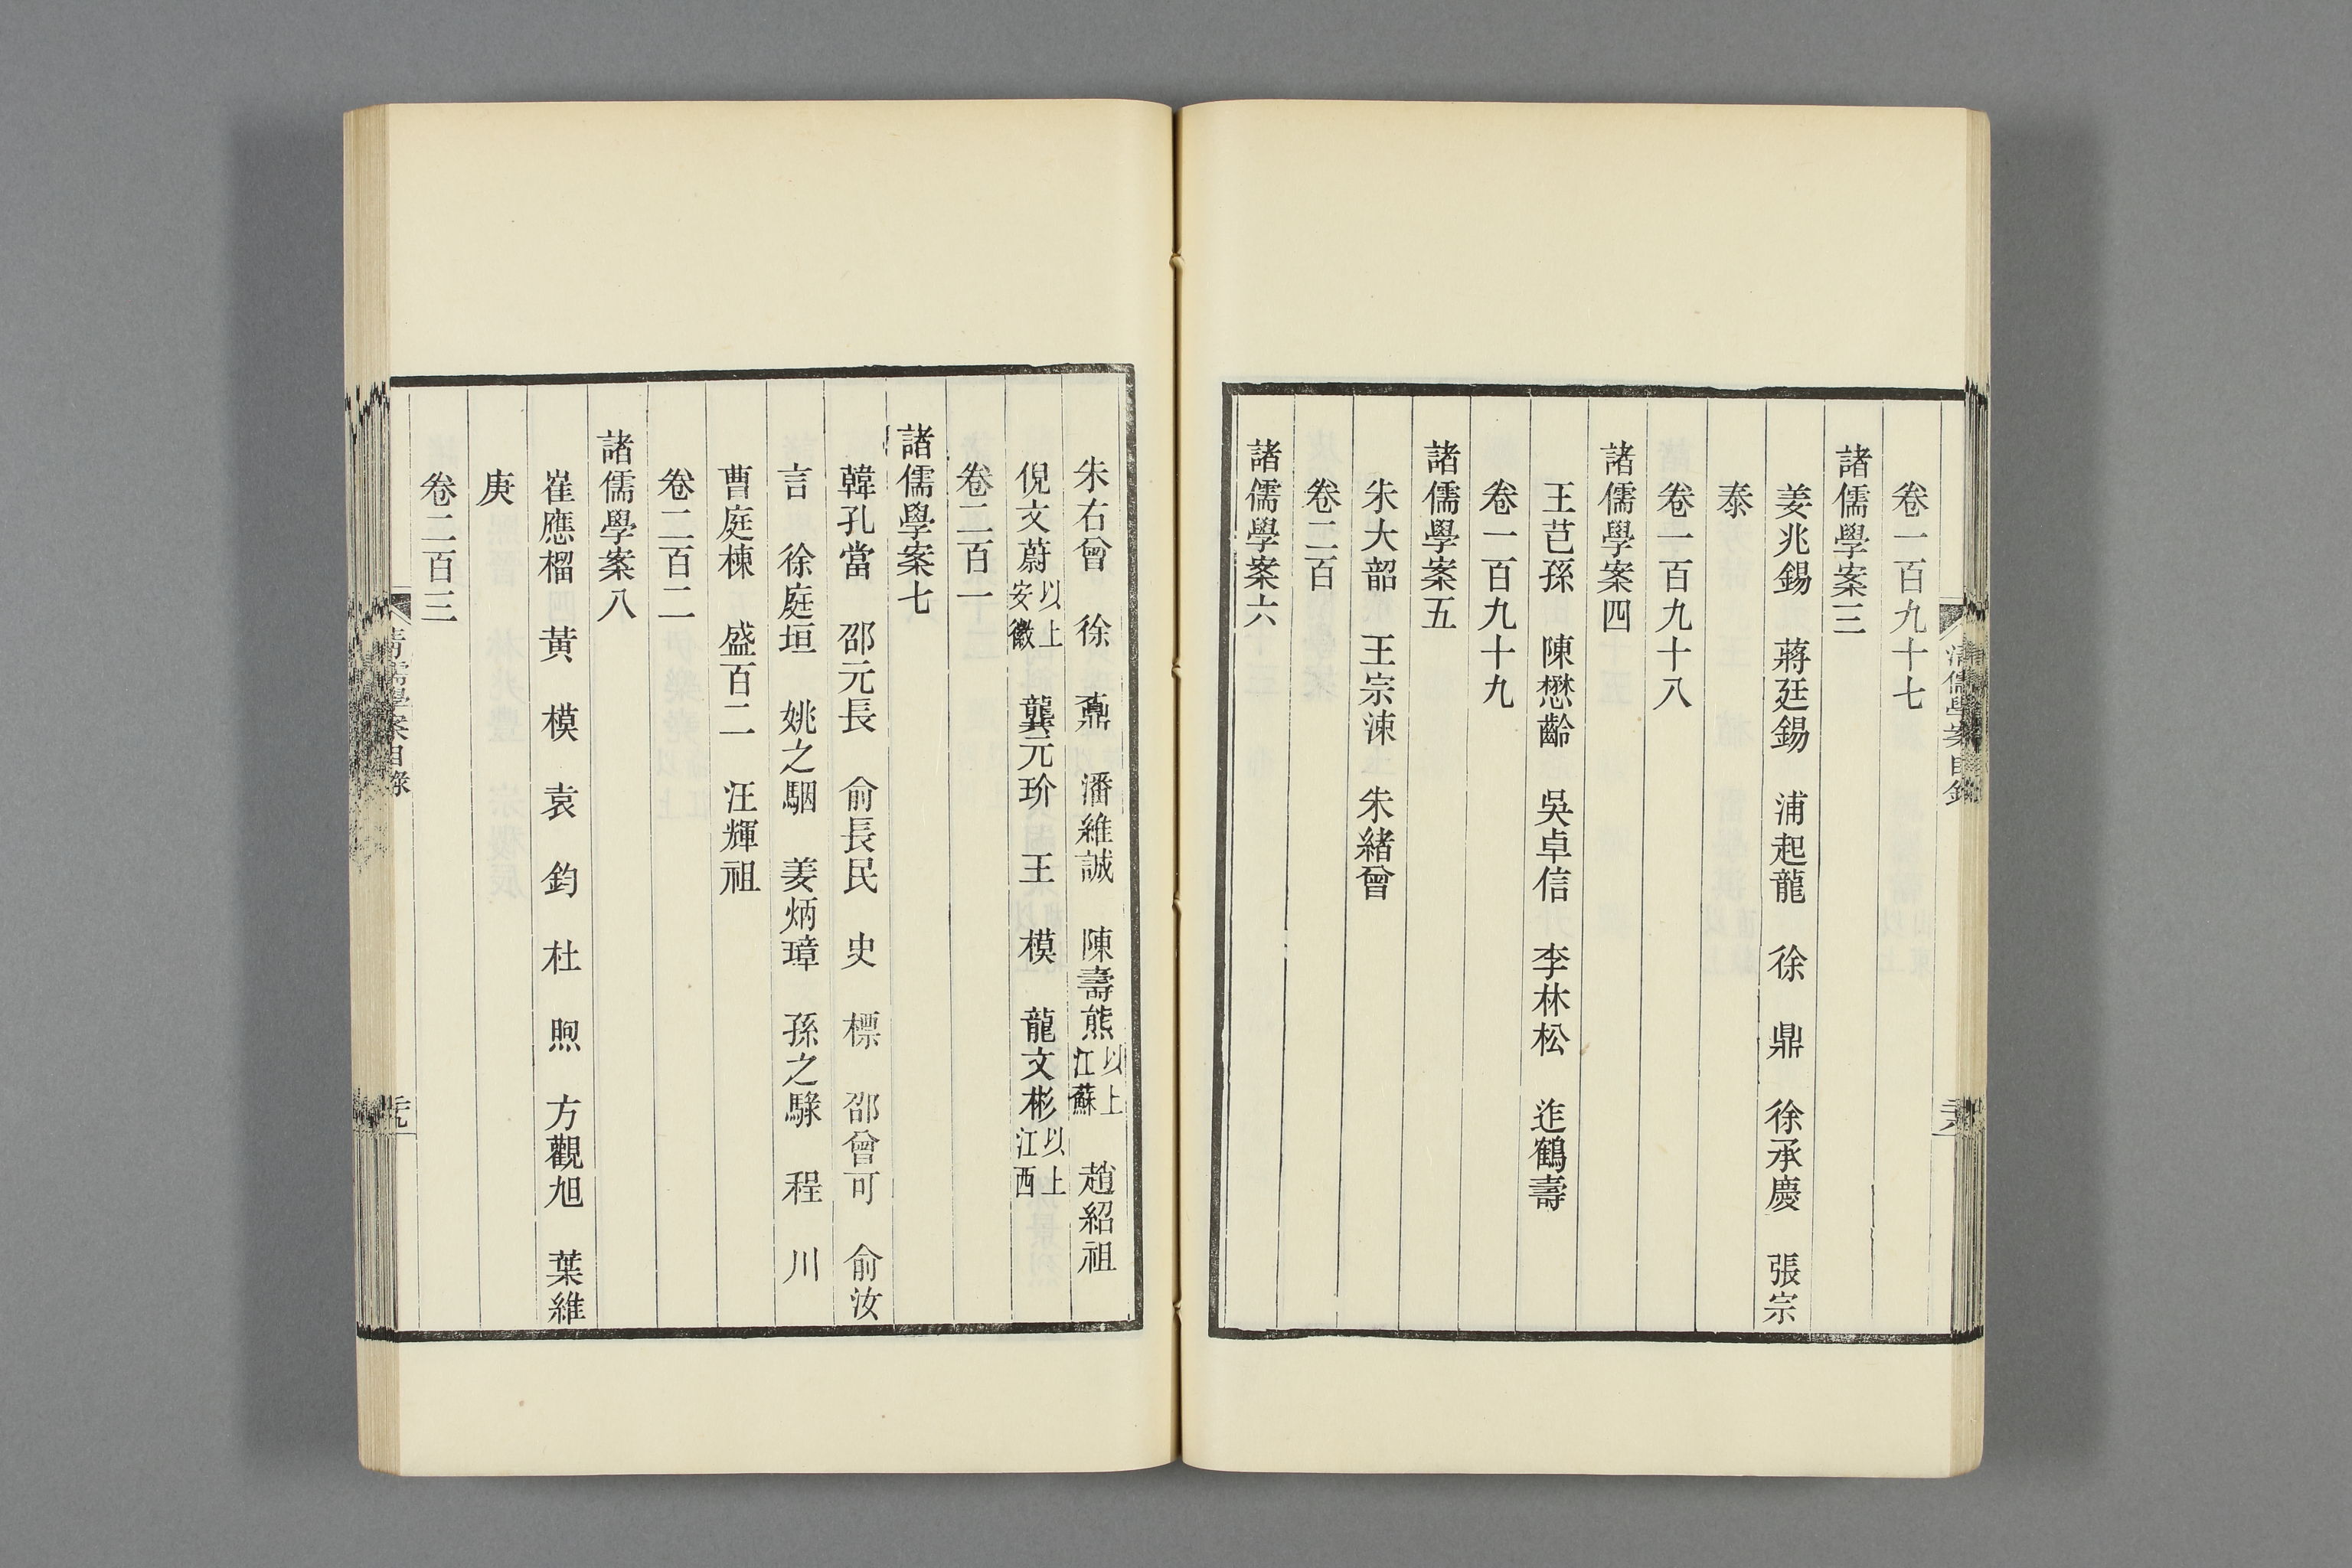 卷一百九十七
諸儒學案三
姜兆錫　蔣廷錫　浦起龍　徐　鼎　徐承慶　張宗
泰
卷一百九十八
諸儒學案四
王芑孫　陳懋齡　吳卓信　李林松　迮鶴壽
卷一百九十九
諸儒學案五
朱大韶　王宗涑　朱緒曾
卷二百
諸儒學案六
朱右曾　徐　鼒　潘維誠　陳壽熊以上江蘇　趙紹祖
倪文蔚以上安徽　龔元玠　王　模　龍文彬以上江西
卷二百一
諸儒學案七
韓孔當　邵元長　俞長民　史　標　邵曾可　俞汝
言　徐庭垣　姚之駰　姜炳璋　孫之騄　程　川
曹庭棟　盛百二　汪輝祖
卷二百二
諸儒學案八
崔應榴　黃　模　袁　鈞　杜　煦　方觀旭　葉維
庚
卷二百三
清儒學案目錄